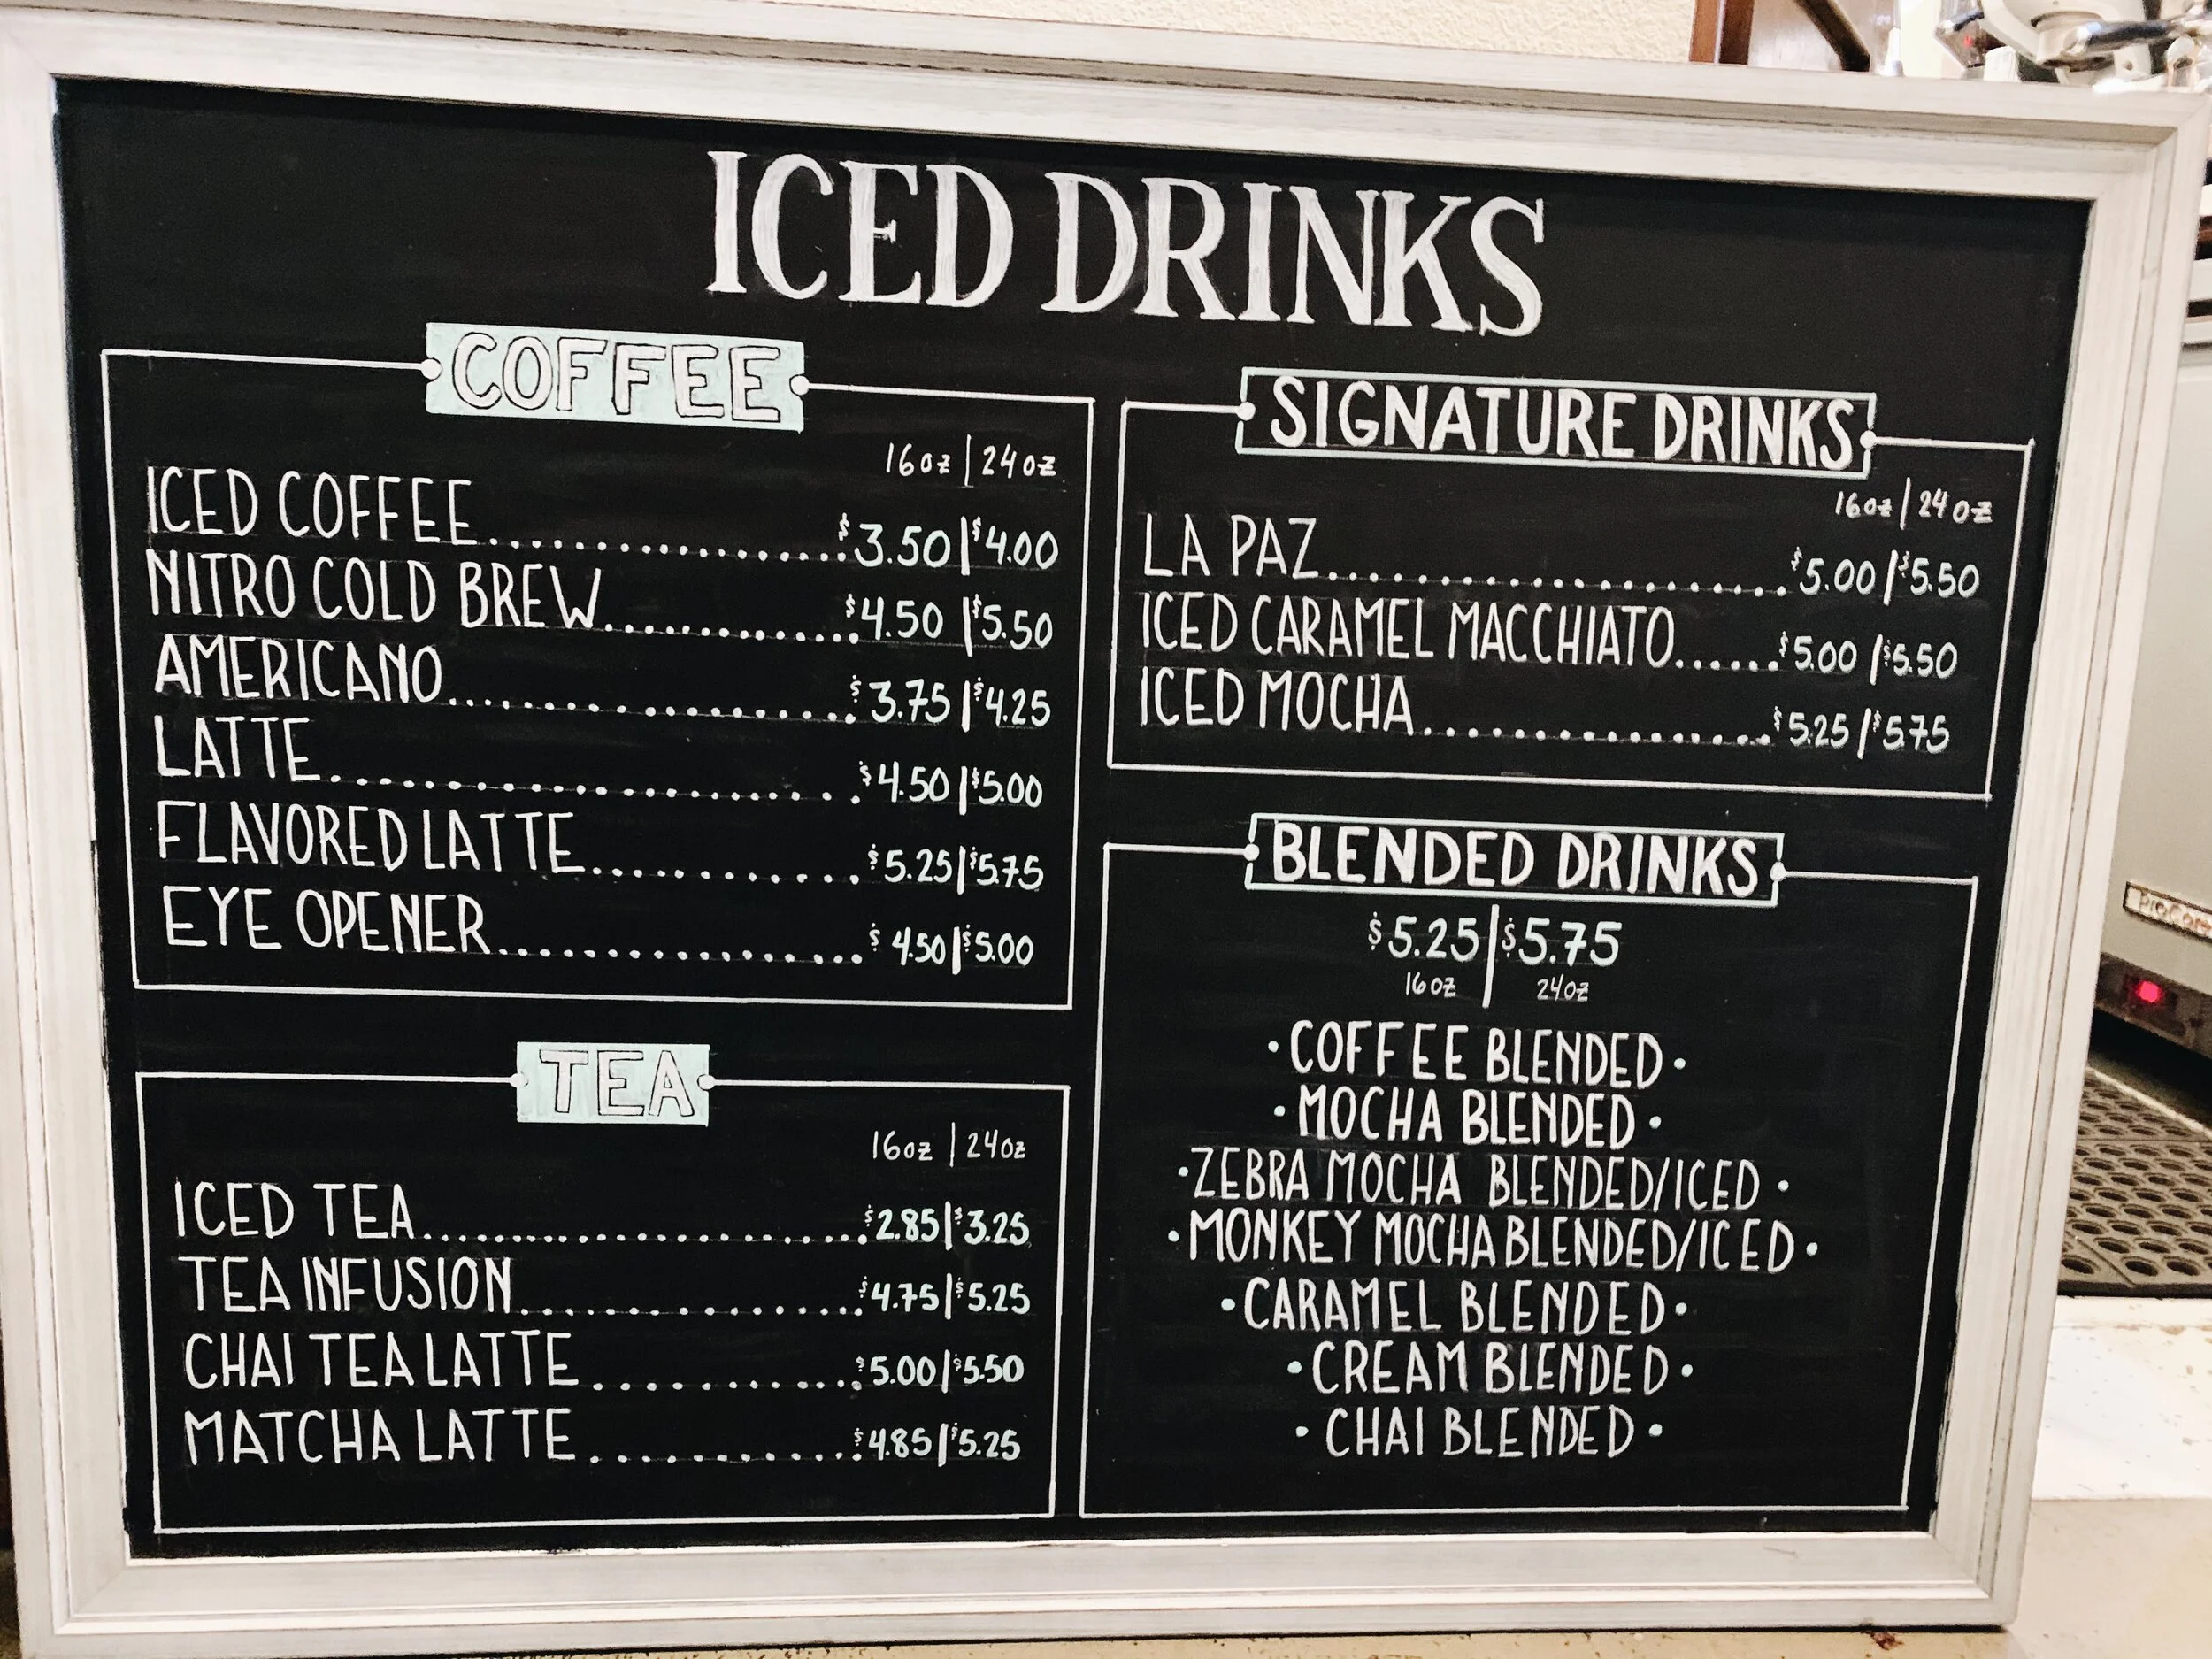 ICED DRINKS
COFFEE
16oz | 24oz
ICED COFFEE........................$3.50 | $4.00
NITRO COLD BREW.................$4.50 | $5.50
AMERICANO........................$3.75 | $4.25
LATTE..............................$4.50 | $5.00
FLAVORED LATTE.................$5.25 | $5.75
EYE OPENER......................$4.50 | $5.00
TEA
16oz | 24oz
ICED TEA..........................$2.85 | $3.25
TEA INFUSION....................$4.75 | $5.25
CHAI TEA LATTE.................$5.00 | $5.50
MATCHA LATTE..................$4.85 | $5.25
SIGNATURE DRINKS
16oz | 24oz
LA PAZ............................$5.00 | $5.50
ICED CARAMEL MACCHIATO......$5.00 | $5.50
ICED MOCHA.....................$5.25 | $5.75
BLENDED DRINKS
$5.25 | $5.75
16oz | 24oz
• COFFEE BLENDED •
• MOCHA BLENDED •
• ZEBRA MOCHA BLENDED/ICED •
• MONKEY MOCHA BLENDED/ICED •
• CARAMEL BLENDED •
• CREAM BLENDED •
• CHAI BLENDED •